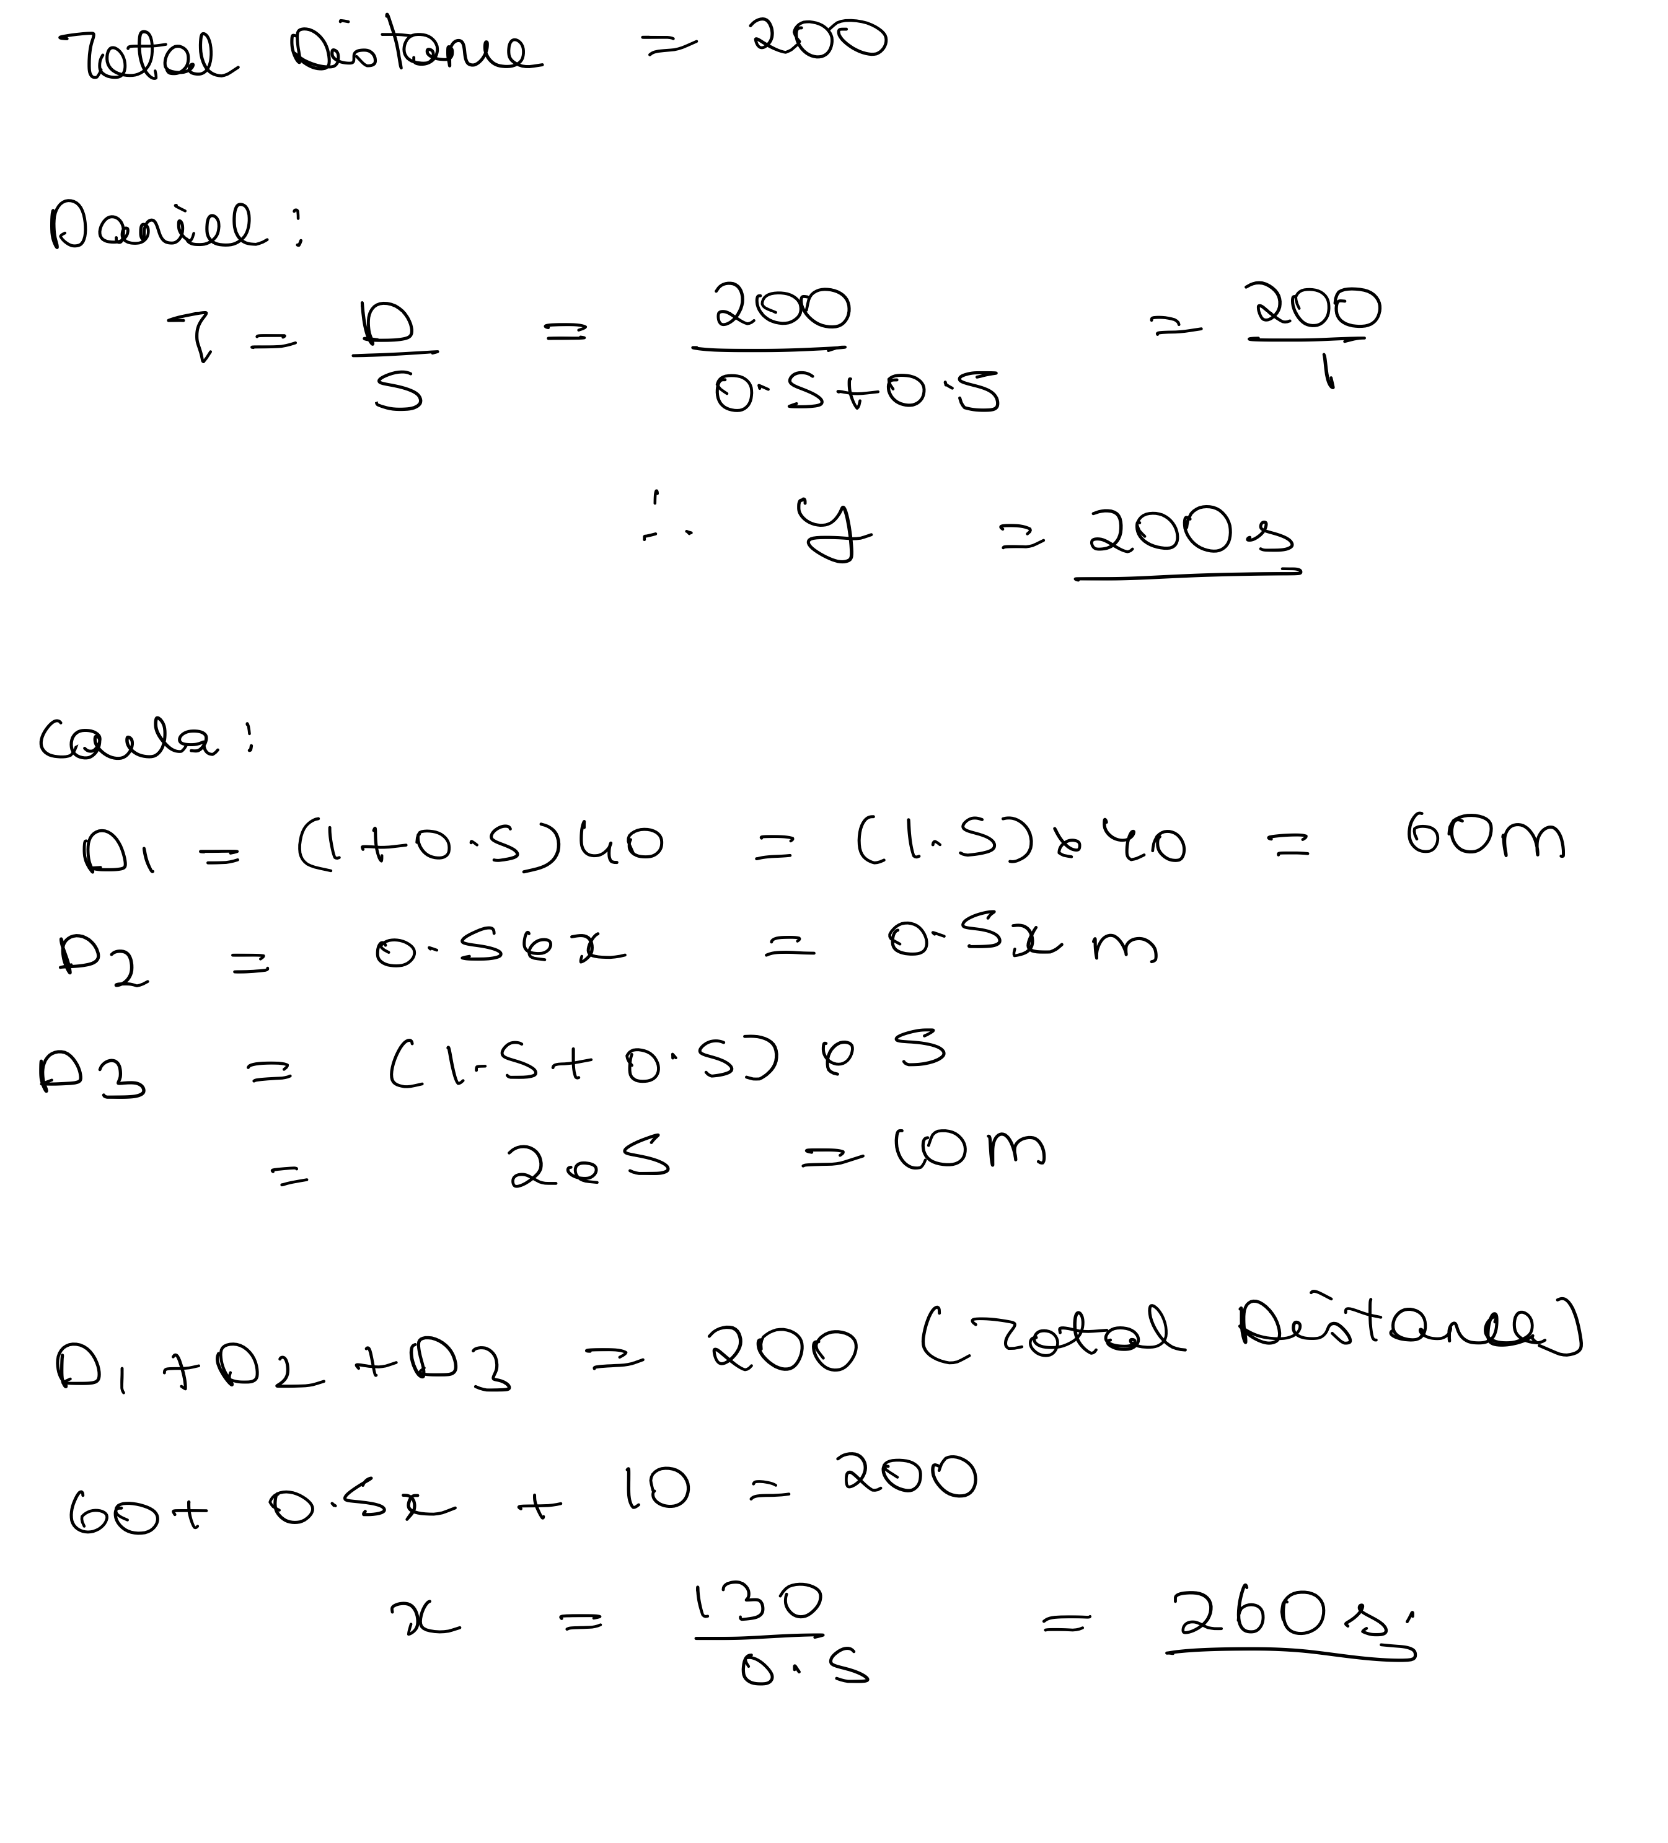 Total Distance = 200
Daniel:
T = D/S = 200/(0.5+0.5) = 200/1
∴ y = 200s
Carla:
D1 = (1+0.5)40 = (1.5)×40 = 60m
D2 = 0.5×x = 0.5x m
D3 = (1.5+0.5)×5
= 2×5 = 10m
D1+D2+D3 = 200 (Total Distance)
60+0.5x + 10 = 200
x = 130/0.5 = 260s.